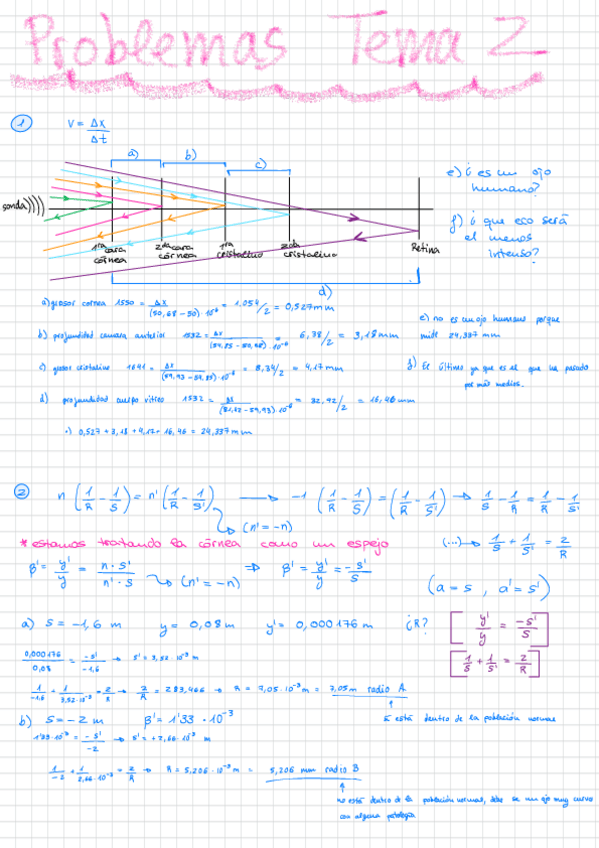 Problemas Tema 2
1
V = Δx / Δt
a) b) c)
sonda
1ra cara córnea
2da cara córnea
1ra cristalino
2da cristalino
Retina
d)
e) ¿ es un ojo humano?
f) ¿ que eco será el menos intenso?
a) grosor cornea 1550 = Δx / (50,68 - 50)·10⁻⁶ = 1,054/2 = 0,527mm
b) profundidad camara anterior 1532 = Δx = 6,38/2 = 3,18mm
c) grosor cristalino 1641 = Δx = 8,34/2 = 4,17mm
d) profundidad cuerpo vitreo 1532 = Δx / (81,42 - 59,93)·10⁻⁶ = 32,92/2 = 16,46mm
0,527 + 3,18 + 4,17 + 16,46 = 24,337mm
e) no es un ojo humano porque
mide 24,337 mm
f) El último ya que es el que ha pasado
por más medios.
2
n (1/R - 1/S) = n' (1/R - 1/S') → -1 (1/R - 1/S) = (1/R - 1/S') → 1/S - 1/R = 1/R - 1/S'
(n' = -n)
* estamos tratando la córnea como un espejo
(...) → 1/S + 1/S' = 2/R
β' = y'/y = n·s' / n'·s (n' = -n) ⇒ β' = y'/y = -s'/s
(a = s , a' = s')
a) s = -1,6 m y = 0,08 m y' = 0,000176 m ¿R?
[ y'/y = -s'/s ]
[ 1/s + 1/s' = 2/R ]
0,000176 / 0,08 = -s' / -1,6 → s' = 3,52·10⁻³ m
1/-1,6 + 1/3,52·10⁻³ = 2/R → 2/R = 283,466 → R = 7,05·10⁻³ m = 7,05m radio A
está dentro de la población normal
b) s = -2 m β' = 1'33 · 10⁻³
1'33·10⁻³ = -s' / -2 → s' = +2,66·10⁻³ m
1/-2 + 1/2,66·10⁻³ = 2/R → R = 5,206·10⁻³ m = 5,206 mm radio B
no está dentro de la población normal, debe se un ojo muy curvo
con alguna patología